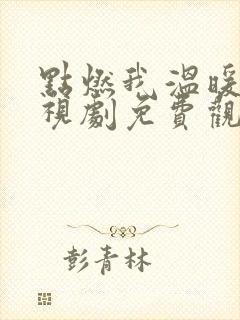 點燃我,溫暖
視劇免費觀
彭青林